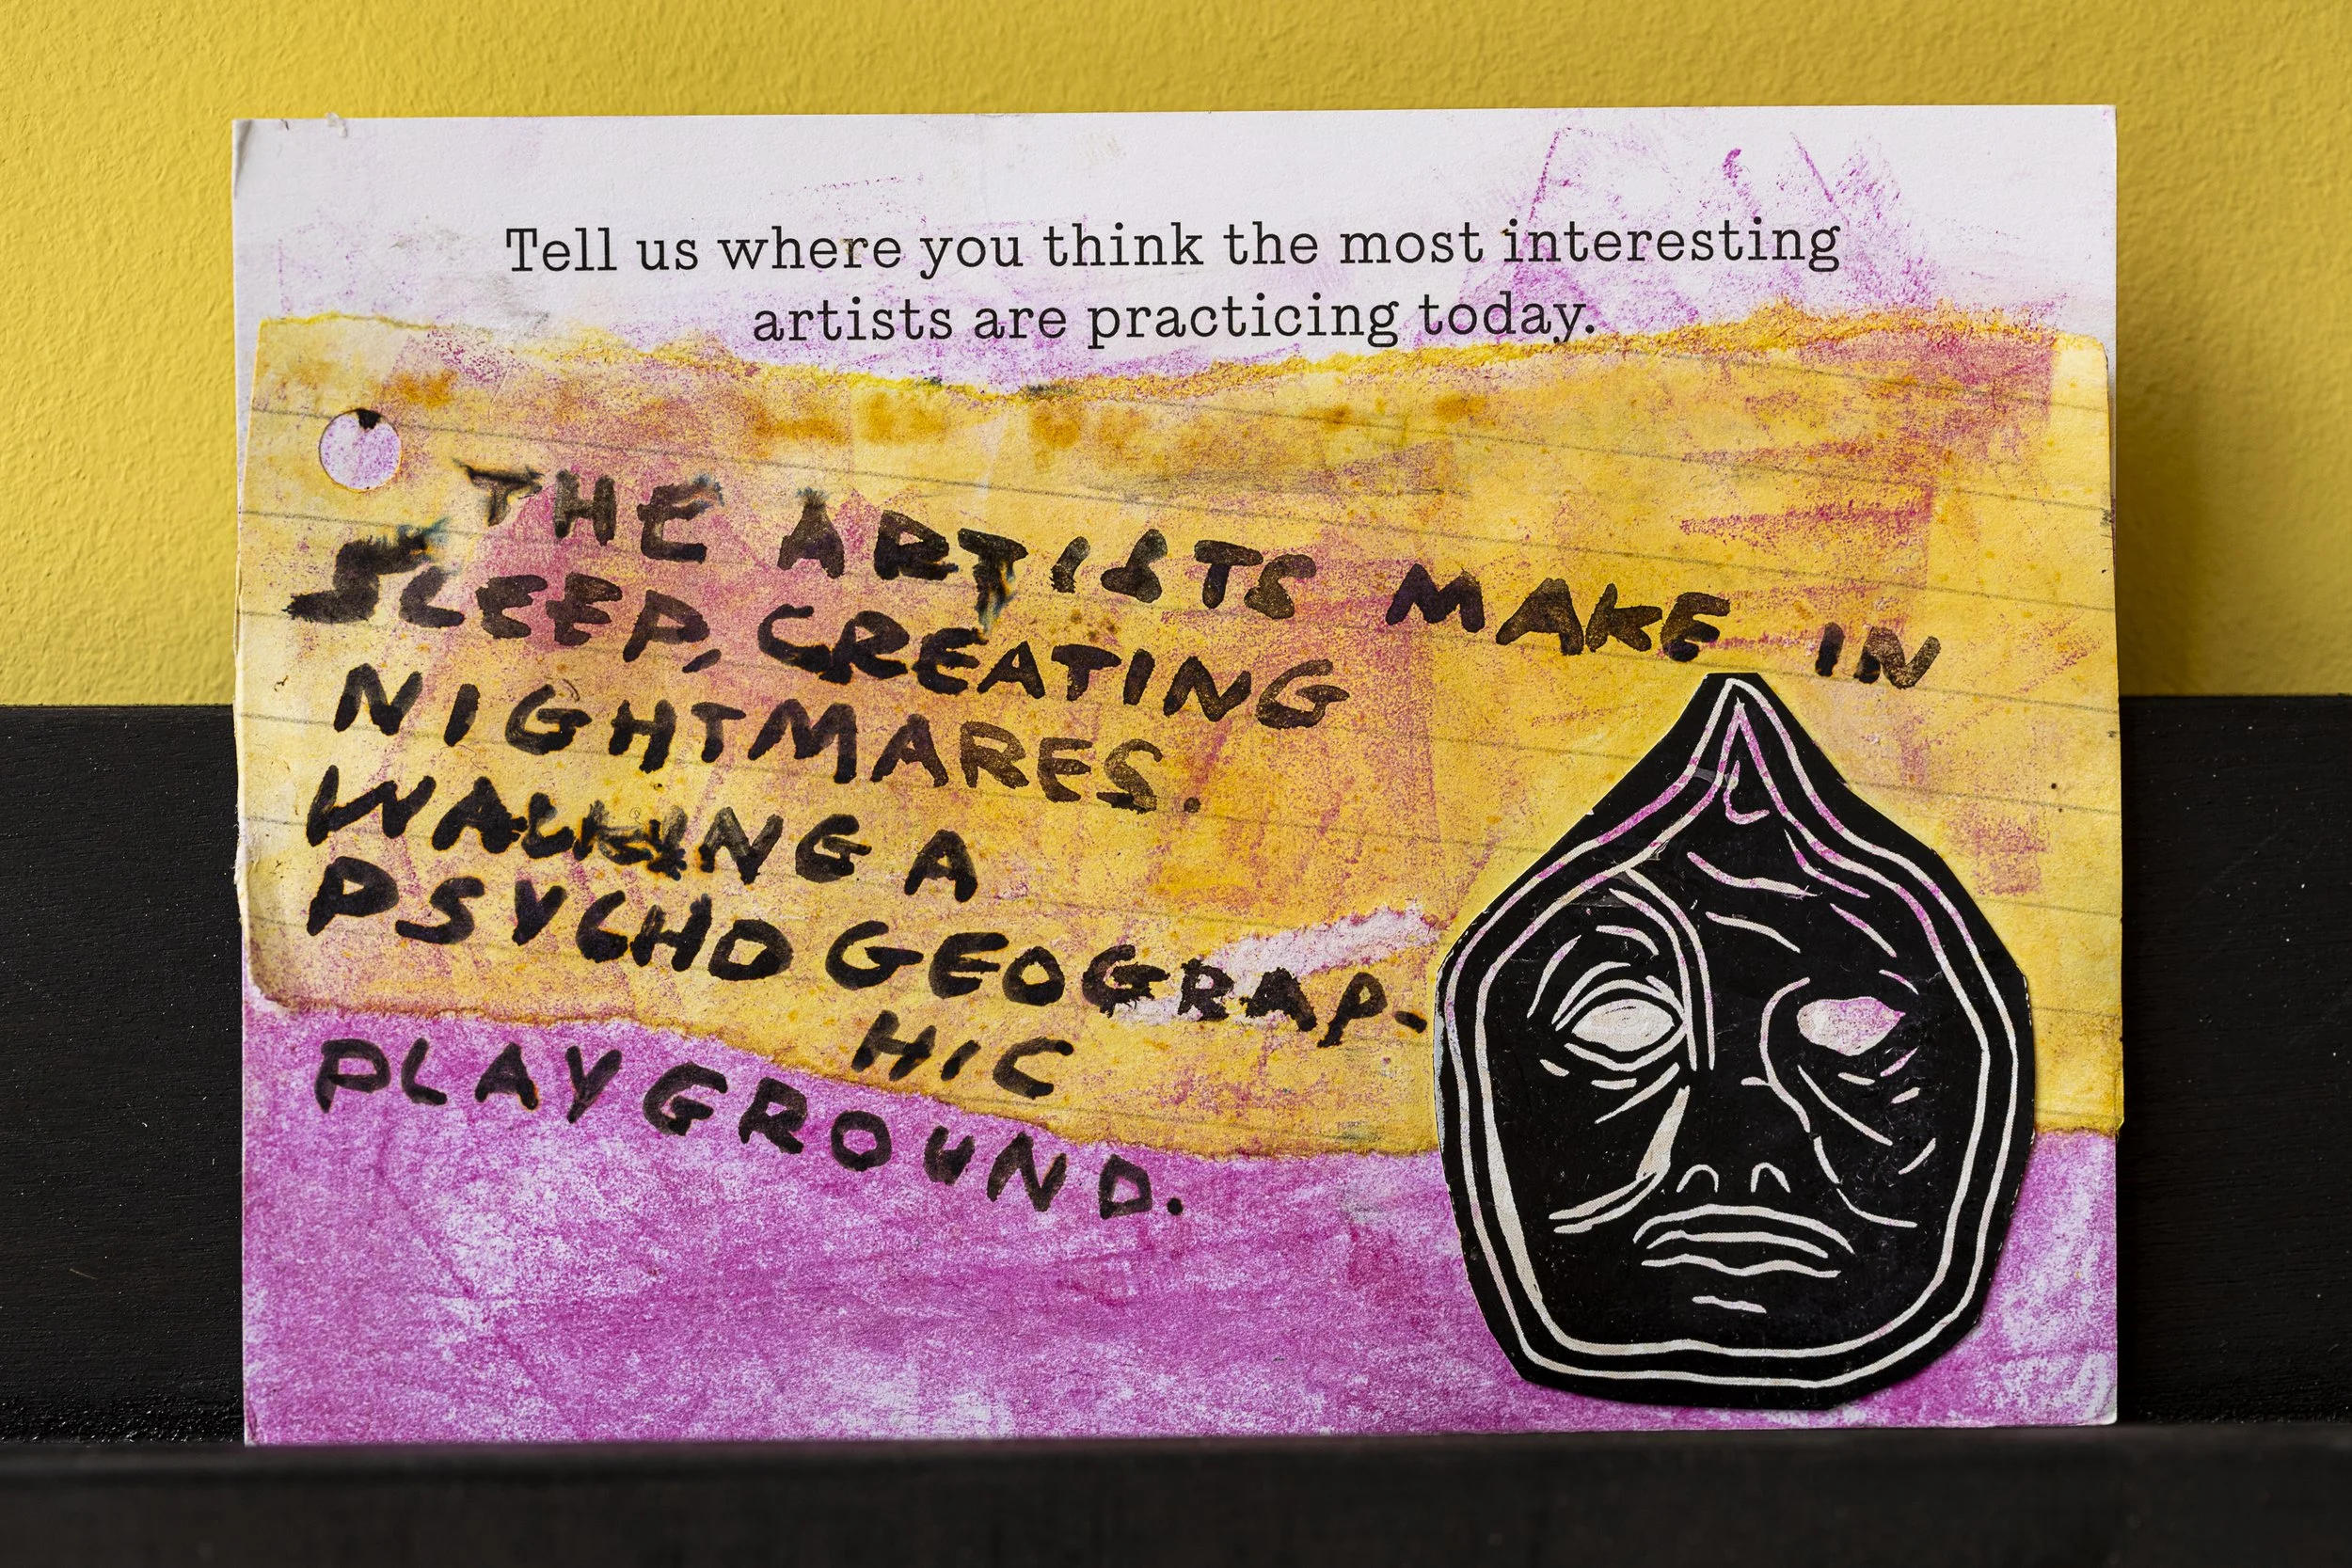 Tell us where you think the most interesting
artists are practicing today.
THE ARTISTS MAKE IN
SLEEP, CREATING
NIGHTMARES.
WALKING A
PSYCHOGEOGRAP-
HIC
PLAYGROUND.